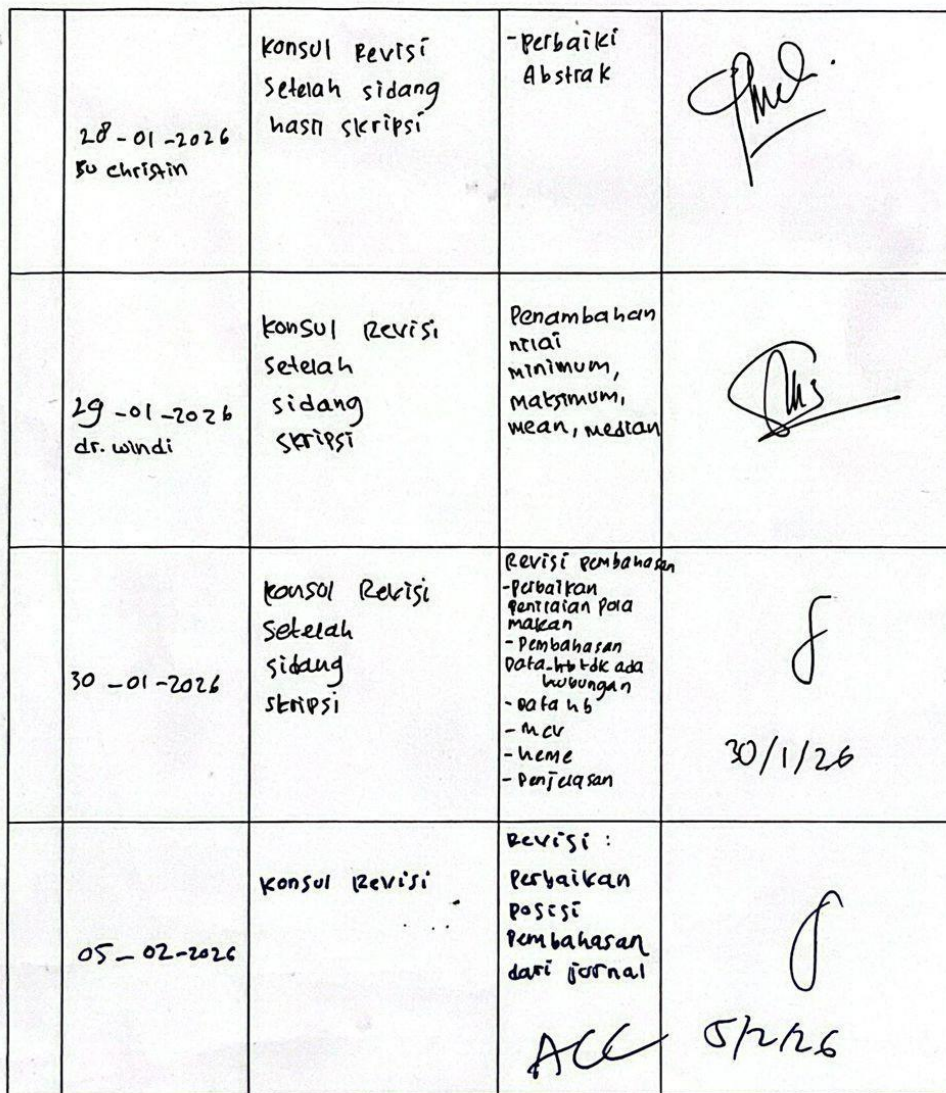 28-01-2026
Bu Christin
Konsul Revisi
Setelah sidang
hasil skripsi
-Perbaiki
Abstrak
29-01-2026
dr. windi
Konsul Revisi
Setelah
sidang
skripsi
Penambahan
nilai
minimum,
maksimum,
mean, median
30-01-2026
Konsul Revisi
Setelah
sidang
skripsi
Revisi pembahasan
-Perbaikan
penilaian pola
makan
- Pembahasan
Data-hb tdk ada
hubungan
- Data hb
- mcv
- heme
- Penjelasan
30/1/26
05-02-2026
Konsul Revisi
Revisi :
Perbaikan
posisi
Pembahasan
dari jurnal
ACC
5/2/26